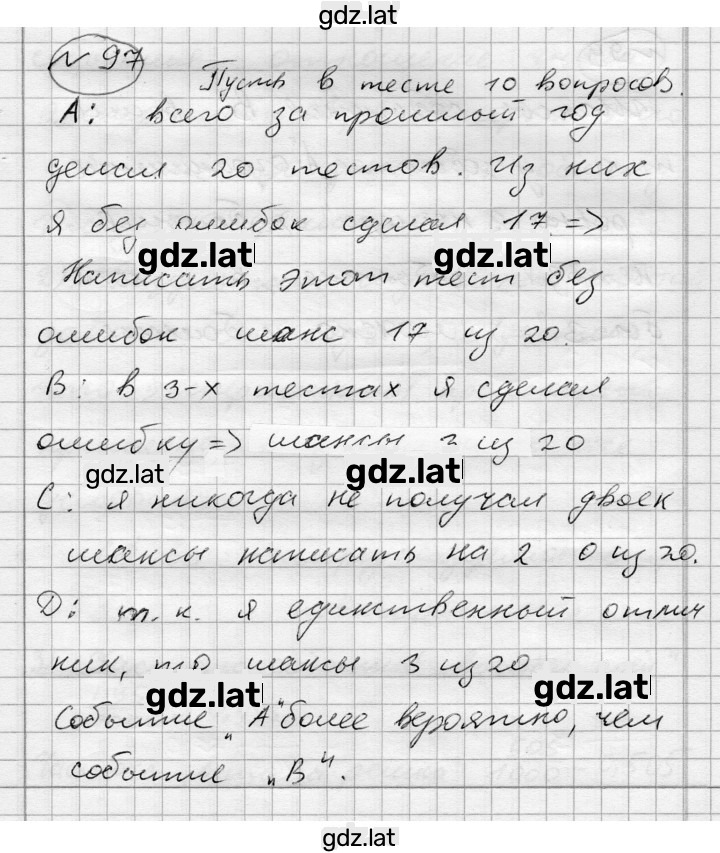 gdz.lat
№ 97
Пусть в тесте 10 вопросов.
А: всего за прошлый год
делал 20 тестов. Из них
я без ошибок сделал 17 =>
gdz.lat gdz.lat
Написать этот тест без
ошибок шанс 17 из 20.
В: в 3-х тестах я сделал
ошибку => шансы из 20
gdz.lat gdz.lat
С: я никогда не получал двоек
шансы написать на 2 0 из 20.
D: т.к. я единственный отлич
ник, то шансы 3 из 20
gdz.lat gdz.lat
Событие „А" более вероятно, чем
событие „В".
gdz.lat